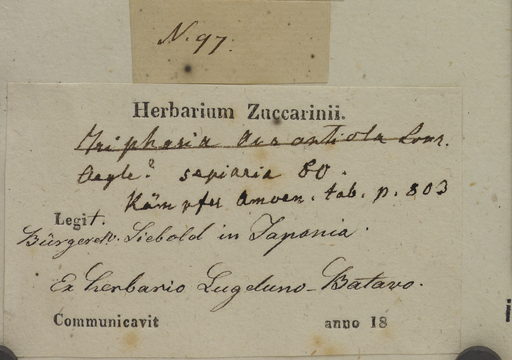 N. 97.
Herbarium Zuccarinii.
Triphasia Aurantiola Lour.
Aegle? sepiaria DC.
Kämpfer Amoen. tab. p. 803
Legit.
Bürger et v. Siebold in Japonia.
Ex herbario Lugduno-Batavo.
Communicavit anno 18